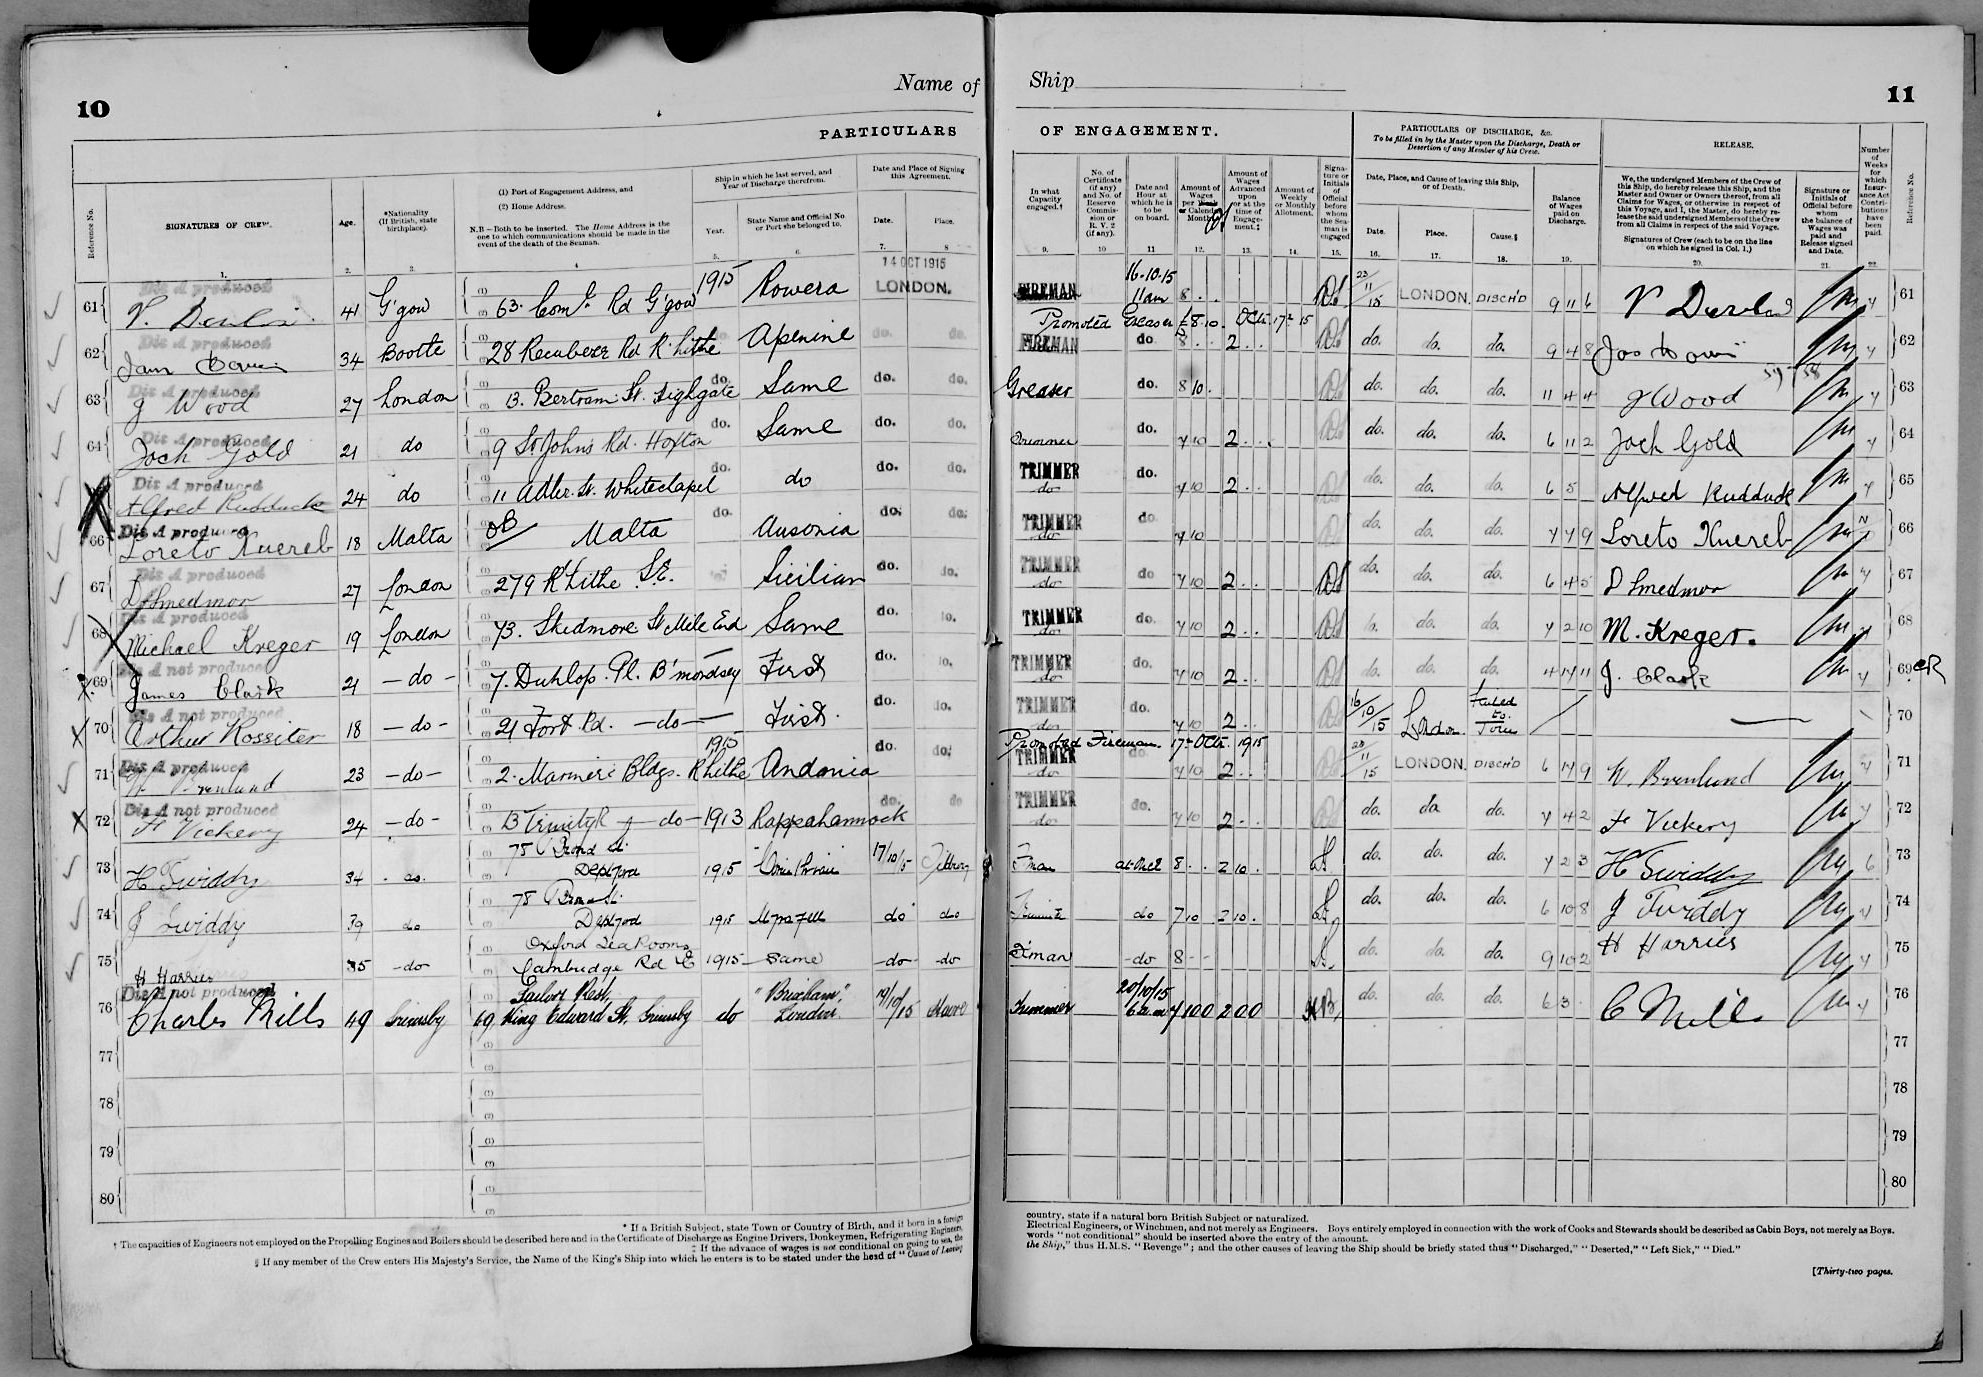 Name of Ship
10
11
PARTICULARS OF ENGAGEMENT.
PARTICULARS OF DISCHARGE, &c.
To be filled in by the Master upon the Discharge, Death or Desertion of any Member of his Crew.
RELEASE.
Reference No.
SIGNATURES OF CREW.
Age.
*Nationality (If British, state birthplace).
(1) Port of Engagement Address, and
(2) Home Address.
N.B.—Both to be inserted. The Home Address is the one to which communications should be made in the event of the death of the Seaman.
Ship in which he last served, and Year of Discharge therefrom.
Year.
State Name and Official No. or Port she belonged to.
Date and Place of Signing this Agreement.
Date.
Place.
In what Capacity engaged.†
No. of Certificate (if any) and No. of Reserve Commission or R.V. 2 (if any).
Date and Hour at which he is to be on board.
Amount of Wages per Week or Calendar Month.
Amount of Wages Advanced upon or at the time of Engagement.‡
Amount of Weekly or Monthly Allotment.
Signature or Initials of Official before whom the Seaman is engaged
Date, Place, and Cause of leaving this Ship, or of Death.
Date.
Place.
Cause.§
Balance of Wages paid on Discharge.
We, the undersigned Members of the Crew of this Ship, do hereby release this Ship, and the Master and Owner or Owners thereof, from all Claims for Wages, or otherwise in respect of this Voyage, and I, the Master, do hereby release the said undersigned Members of the Crew from all Claims in respect of the said Voyage.
Signatures of Crew (each to be on the line on which he signed in Col. 1.)
Signature or Initials of Official before whom the balance of Wages was paid and Release signed and Date.
Number of Weeks for which Insurance Act Contributions have been paid.
Reference No.
1. 2. 3. 4 5. 6. 7. 8 9. 10 11 12. 13. 14. 15. 16. 17. 18. 19. 20. 21. 22.
14 OCT 1915
Dis A produced 1915 16-10-15 23/11/15
61 41 G'gow 63 Rd G'gow LONDON. FIREMAN 11am 8 . . LONDON. DISCH'D 9 11 6 61
Promoted Greaser £8-10. Octr. 17th 15
Dis A produced
62 34 Bootle 28 Reculver Rd R'hithe Apenine do. do. FIREMAN do 8 . . 2 . . do. do. do. 9 4 8 62
Dis A produced
63 J Wood 27 London 13. Bertram St. Highgate do. Same do. do. Greaser do. 8 10 . do. do. do. 11 4 4 J Wood 63
Dis A produced
64 Joch Gold 21 do 9 St Johns Rd. Hoxton do. Same do. do. do. 7 10 2 . . do. do. do. 6 11 2 Joch Gold 64
Dis A produced
Alfred Rudduck 24 do 11 Adler St. Whitechapel do. do do. do. TRIMMER do do. 7 10 2 . . do. do. do. 6 5 Alfred Rudduck 65
Dis A produced
66 Loreto Xuereb 18 Malta Malta do. Ausonia do. do. TRIMMER do do 7 10 do. do. do. 7 7 9 Loreto Xuereb 66
Dis A produced
67 D Smedmor 27 London 279 R'hithe S.E. Sicilian do. do. TRIMMER do do 7 10 2 . . do. do. do. 6 4 5 D Smedmor 67
Dis A produced
68 Michael Kreger 19 London 73. Skidmore St Mile End Same do. do. TRIMMER do do. 7 10 2 . . do. do. 7 2 10 M. Kreger. 68
Dis A not produced
69 James Clark 21 - do - 7. Dunlop. Pl. B'mondsey First do. do. TRIMMER do do. 7 10 2 . . do. do. do. 4 17 11 J. Clark 69 CR
Dis A not produced
70 Arthur Rossiter 18 - do - 21 Fort Rd. - do - First. do. do. TRIMMER do do. 7 10 2 . . 16/10/15 London Failed to Join 70
Promoted Fireman. 17th Octr. 1915
Dis A produced 1915 23/11/15
71 23 - do - 2. Mariners Bldgs. R'hithe Andania do. do. TRIMMER do do. 7 10 2 . . LONDON. DISCH'D 6 17 9 71
Dis A not produced
72 F Vickery 24 - do - - do - 1913 Rappahannock do. do TRIMMER do do. 7 10 2 . . do. do do. 7 4 2 F Vickery 72
73 H Twiddy 34 do. 75 Deptford 1915 17/10/15 Tilbury F'man at once 8 . . 2 10 . do. do. do. 7 2 3 H Twiddy 6 73
74 J Twiddy 39 do 78 Deptford 1915 do do do 7 10 2 10 . do. do. do. 6 10 8 J Twiddy 74
75 H Harries 35 - do - Oxford Tea Rooms Cambridge Rd E 1915 Same - do - - do F'man - do 8 - - do. do. do. 9 10 2 H Harries 75
Dis A not produced
76 Charles Mills 49 Grimsby Sailors Rest, 69 King Edward St, Grimsby do "Brixham", London. 19/10/15 Trimmer 20/10/15 6 a.m 7 10 0 2 0 0 do. do. do. 6 3 C Mills 76
77 77
78 78
79 79
80 80
* If a British Subject, state Town or Country of Birth, and if born in a foreign country, state if a natural born British Subject or naturalized.
† The capacities of Engineers not employed on the Propelling Engines and Boilers should be described here and in the Certificate of Discharge as Engine Drivers, Donkeymen, Refrigerating Engineers, Electrical Engineers, or Winchmen, and not merely as Engineers. Boys entirely employed in connection with the work of Cooks and Stewards should be described as Cabin Boys, not merely as Boys.
‡ If the advance of wages is not conditional on going to sea, the words "not conditional" should be inserted above the entry of the amount.
§ If any member of the Crew enters His Majesty's Service, the Name of the King's Ship into which he enters is to be stated under the head of "Cause of Leaving the Ship," thus H.M.S. "Revenge"; and the other causes of leaving the Ship should be briefly stated thus "Discharged," "Deserted," "Left Sick," "Died."
[Thirty-two pages.